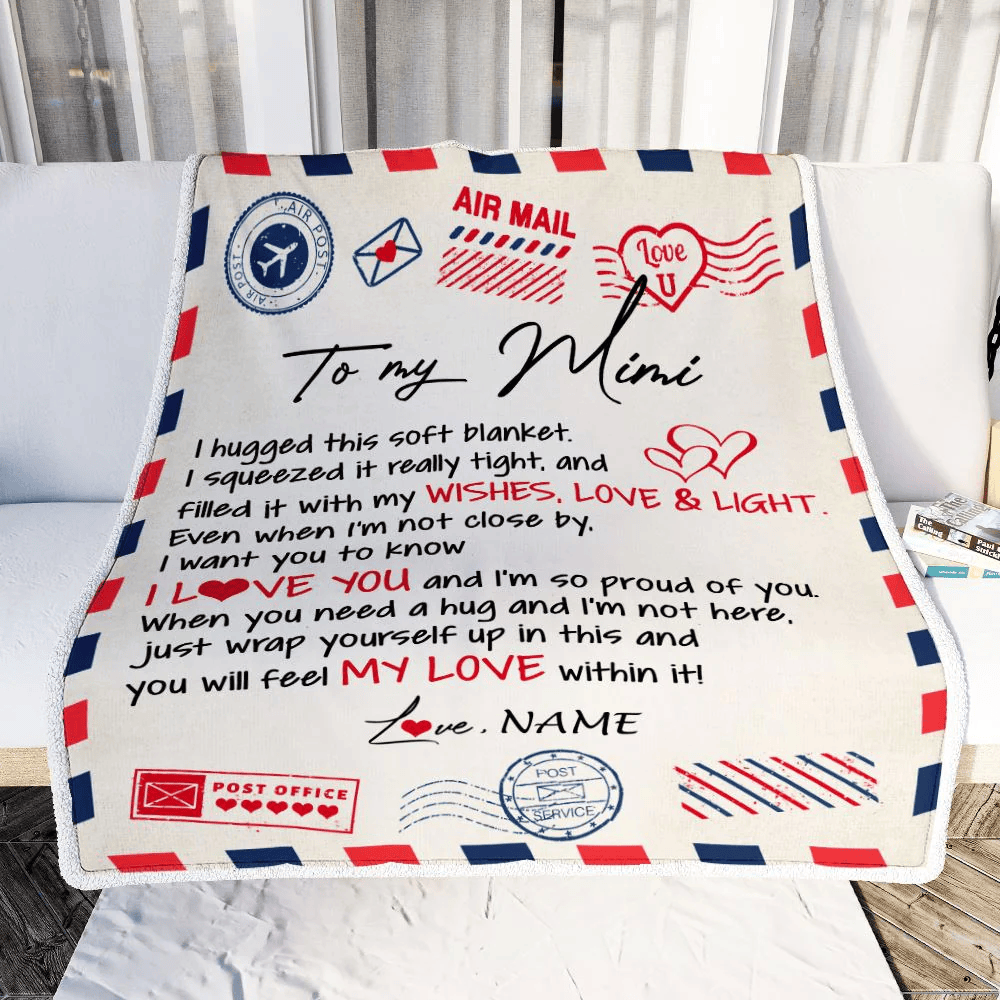 AIR POST
AIR POST
AIR MAIL
Love
U
To my Mimi
I hugged this soft blanket.
I squeezed it really tight, and
filled it with my WISHES, LOVE & LIGHT.
Even when I'm not close by,
I want you to know
I L❤VE YOU and I'm so proud of you.
When you need a hug and I'm not here,
just wrap yourself up in this and
you will feel MY LOVE within it!
L❤ve, NAME
POST OFFICE
POST
SERVICE
The
Calling
Paul